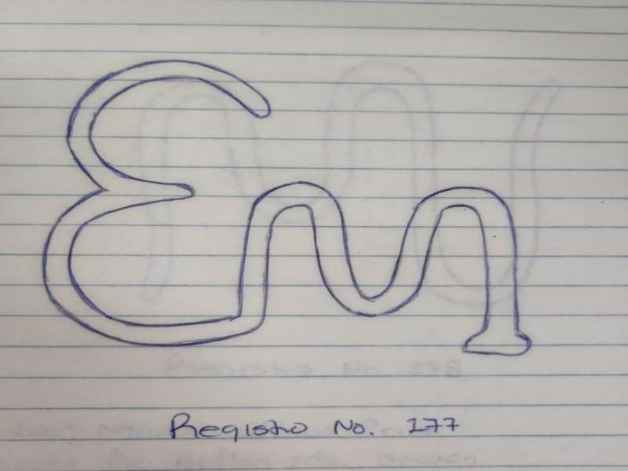 Em
Registro No. 177